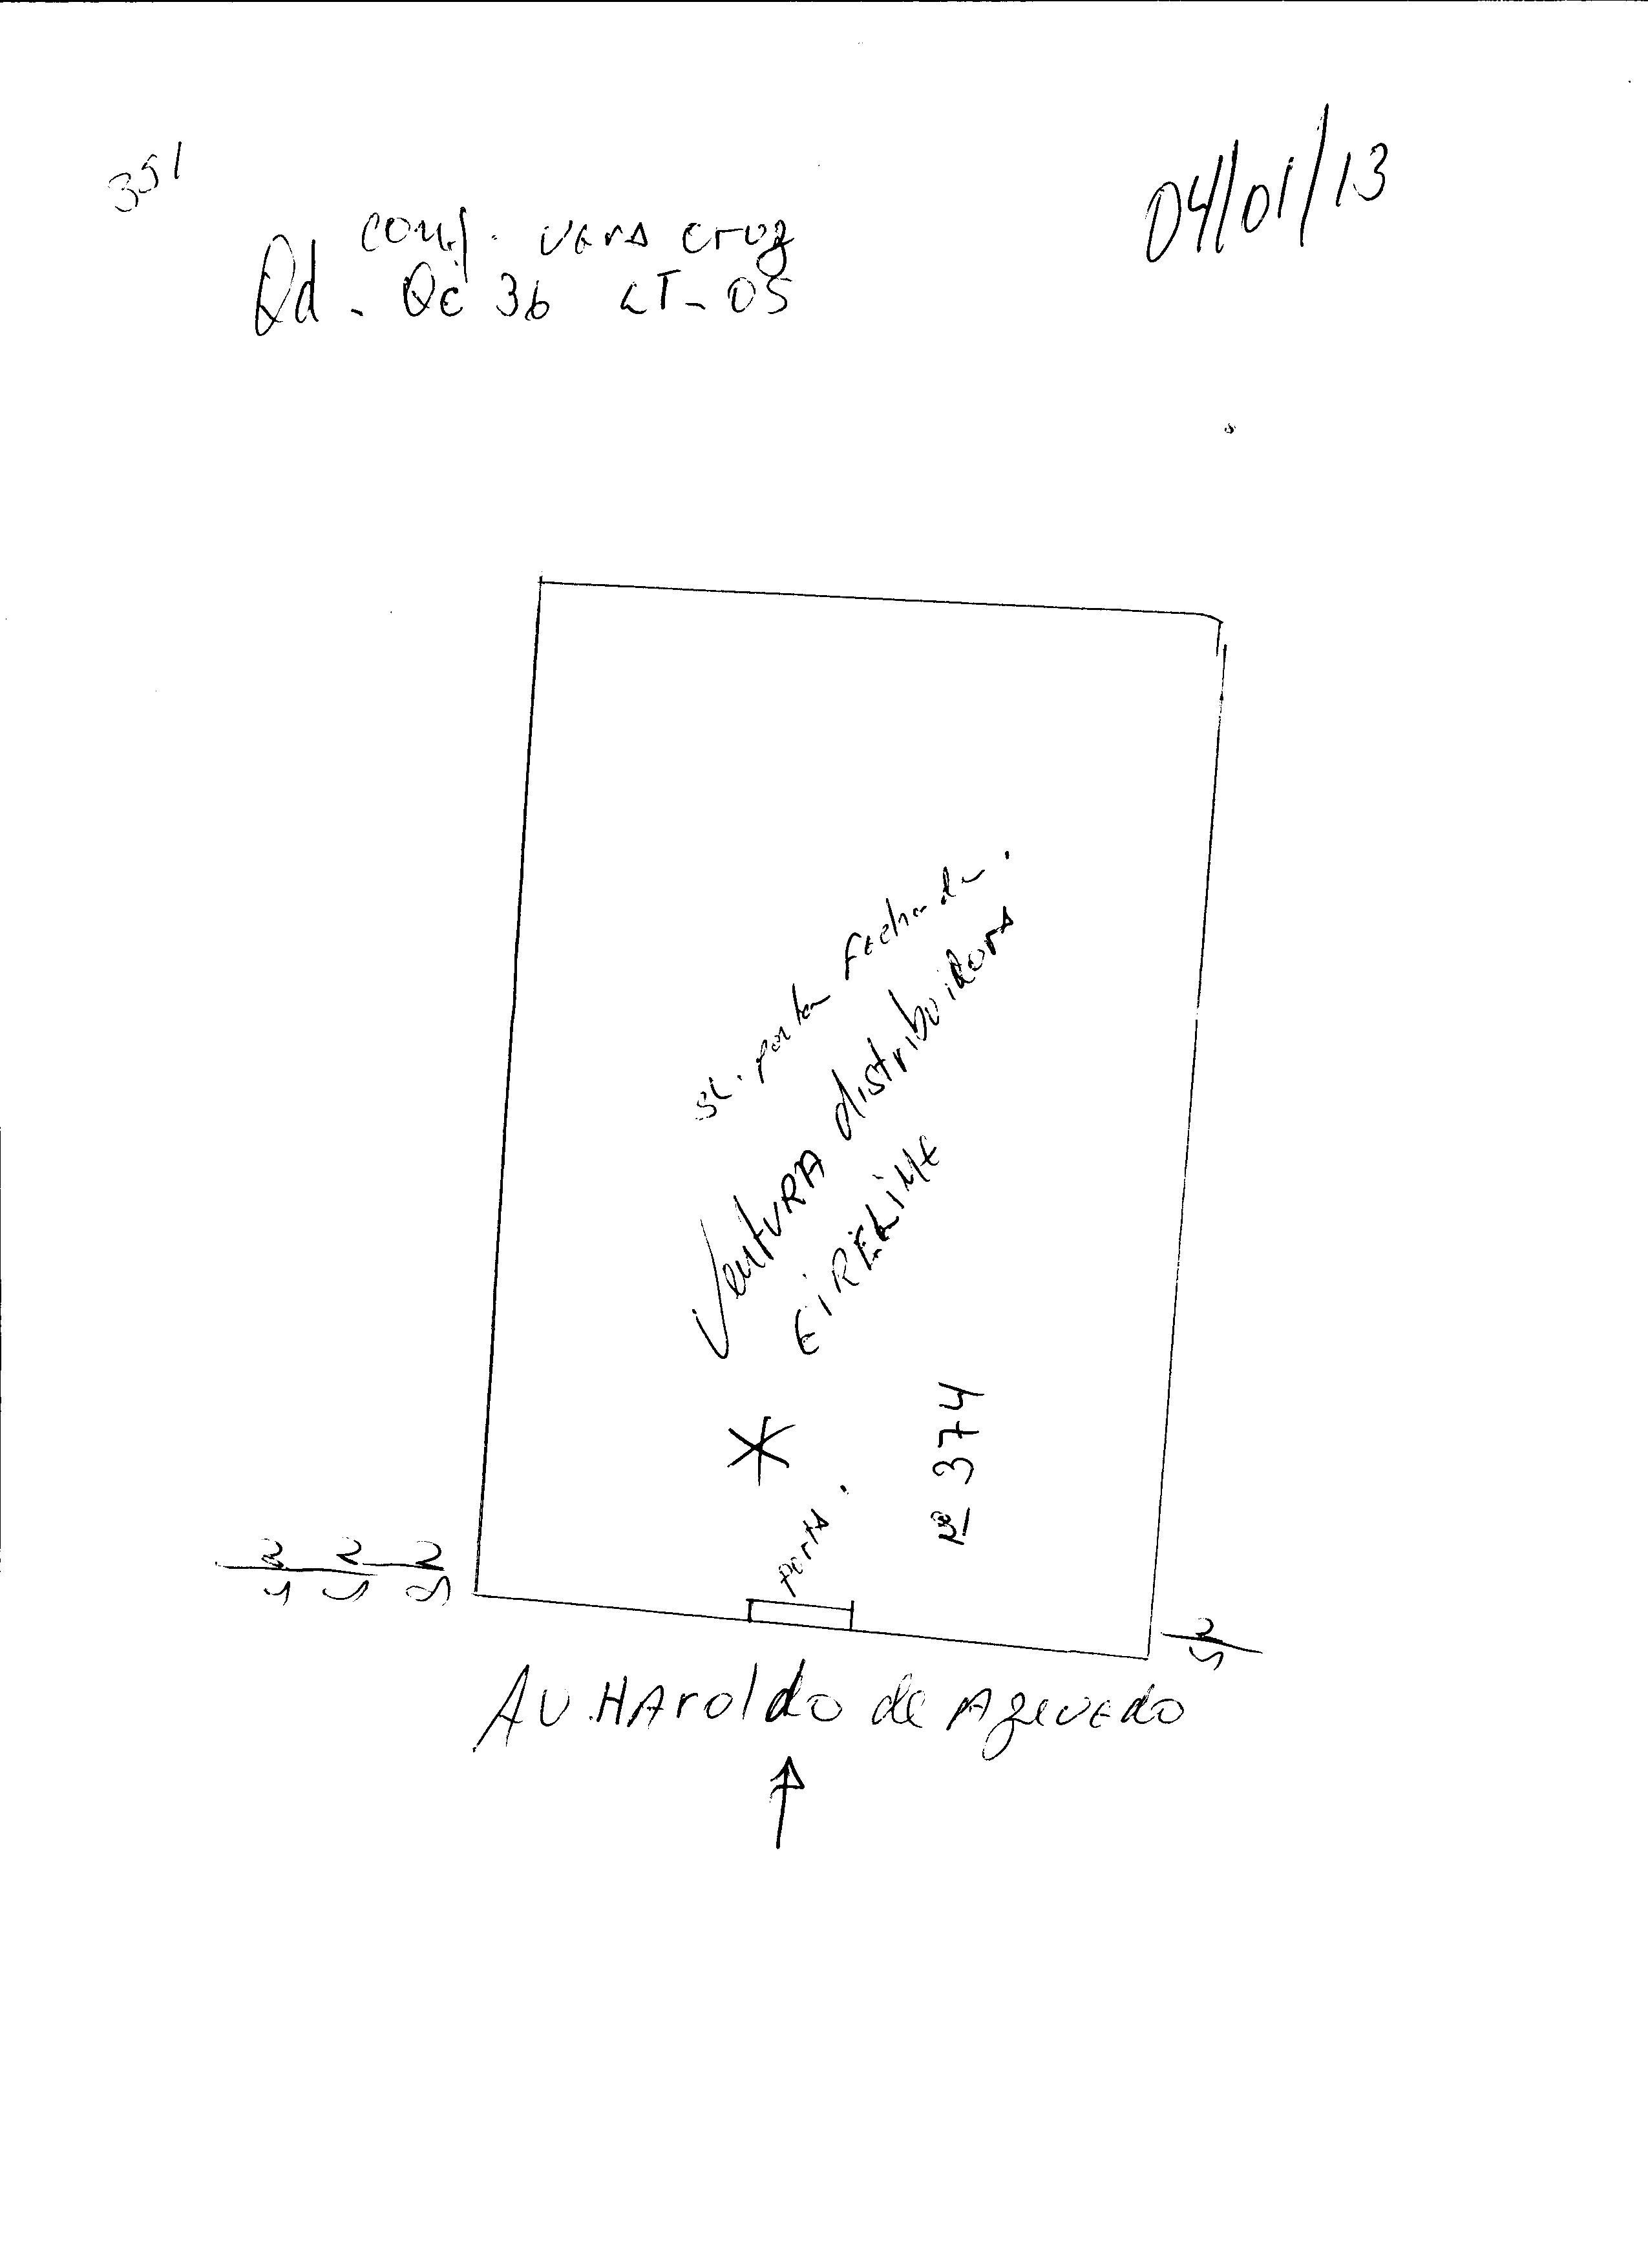 351
04/01/13
conj. vera cruz
Qd - Qc 36 LT - 05
sl. porta fechada.
Ventura distribuidora
EIRELI ME
Nº 374
porta.
AV. HAroldo de Azevedo